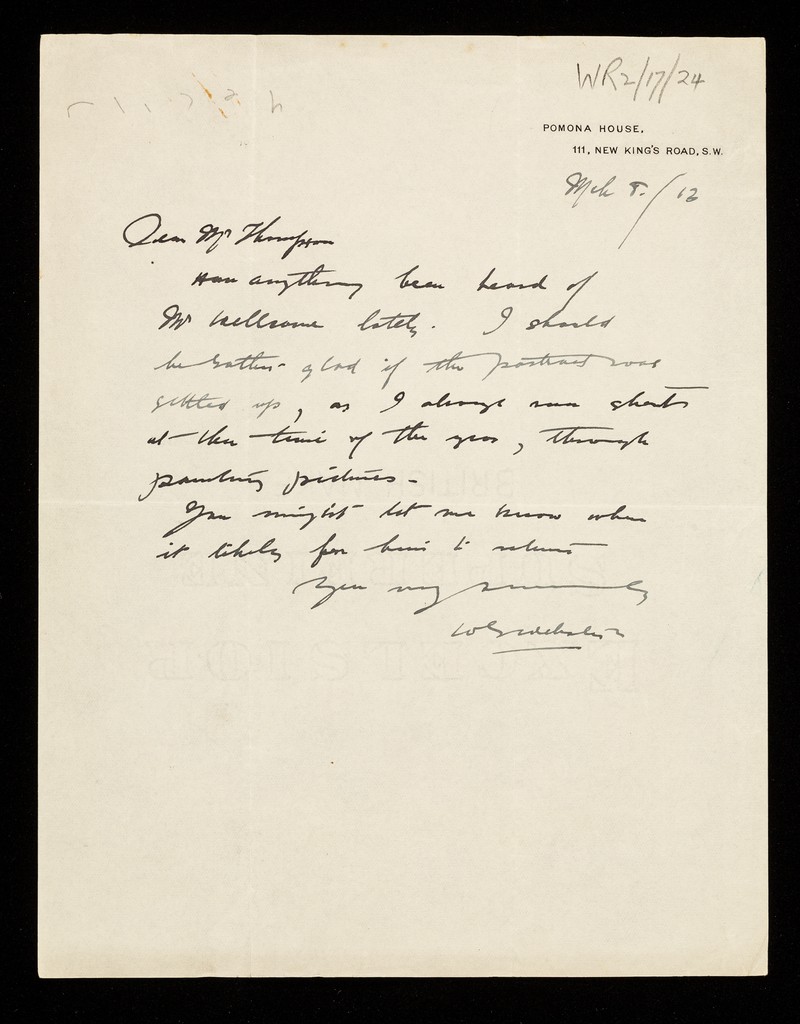 WR2/17/24
POMONA HOUSE,
111, NEW KING'S ROAD, S.W.
Mch 8./12
Dear Mr Thompson
Has anything been heard of
Mr Wellcome lately. I should
be rather glad if the portrait was
settled up, as I always run short
at this time of the year, through
painting pictures.
You might let me know when
it likely for him to return
Yours very sincerely